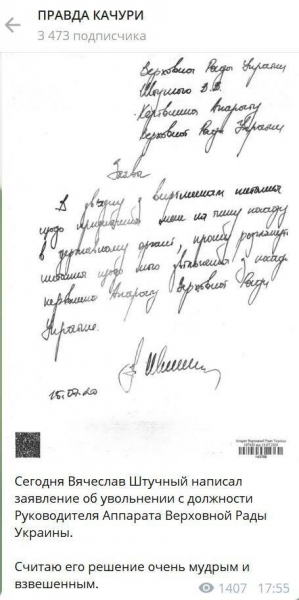 ПРАВДА КАЧУРИ
3 473 подписчика
Верховна Рада України
Штучного В.В.
Керівника Апарату
Верховної Ради України
Заява
В зв'язку з вирішенням питання
щодо призначення мене на іншу посаду
в державному органі, прошу розглянути
питання щодо мого звільнення з посади
керівника Апарату Верховної Ради
України.
15.07.20
Апарат Верховної Ради України
Сегодня Вячеслав Штучный написал
заявление об увольнении с должности
Руководителя Аппарата Верховной Рады
Украины.
Считаю его решение очень мудрым и
взвешенным.
1407 17:55